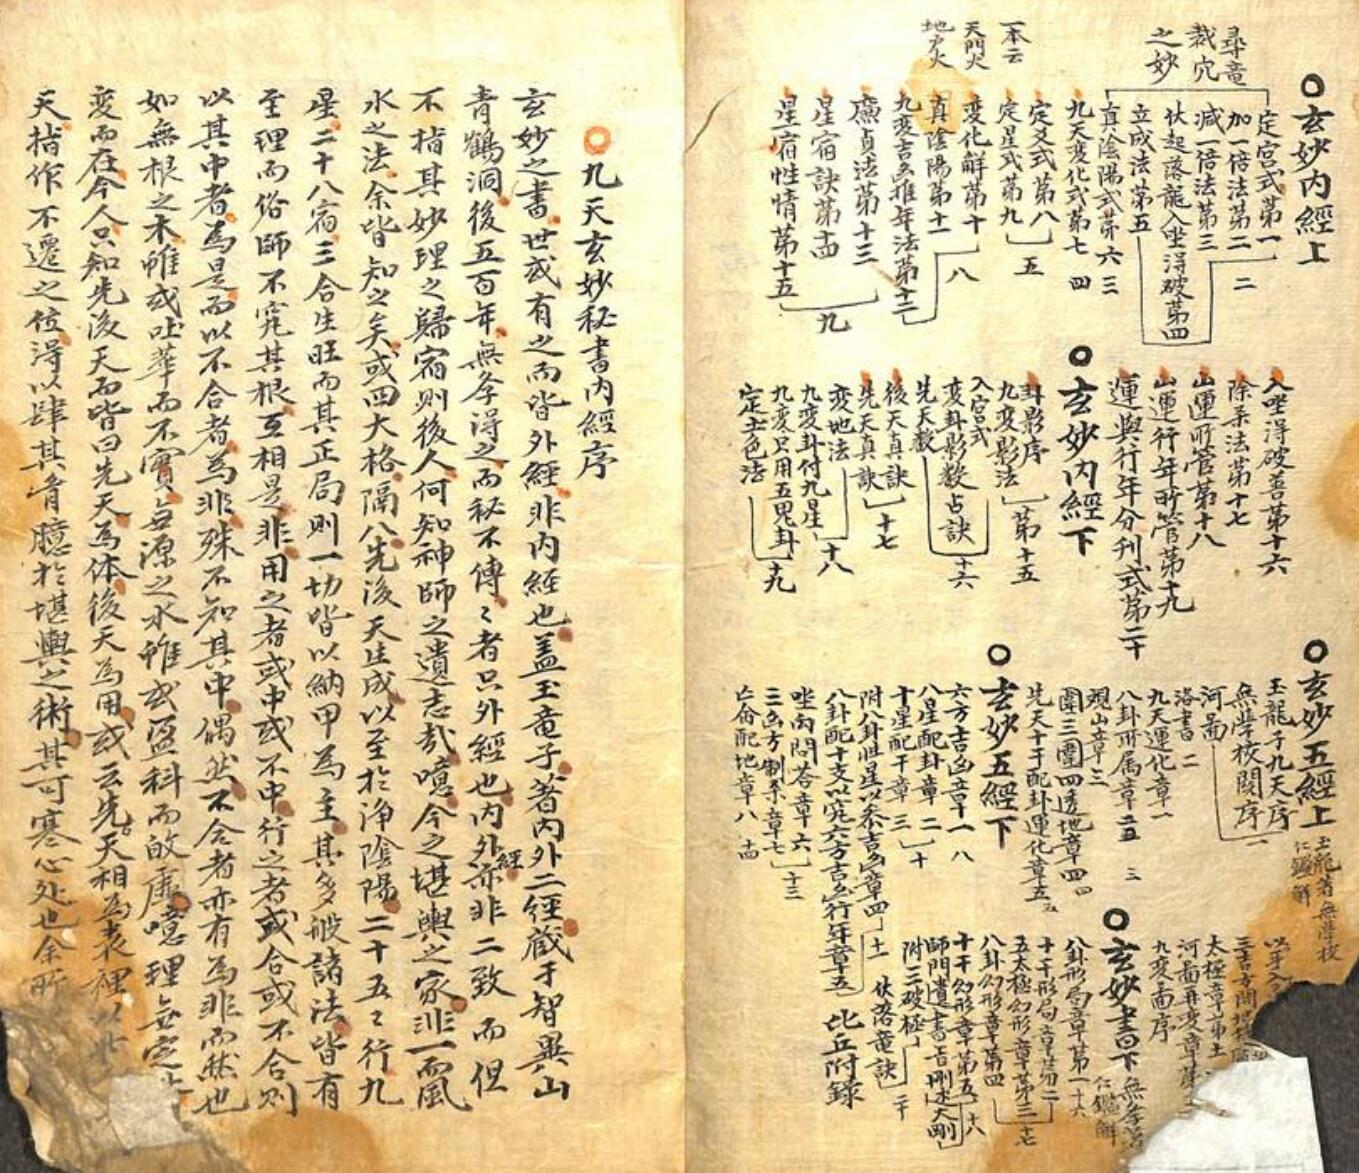 玄妙内經上
尋竜
裁穴
之妙
定宮式第一
加一倍法第二 二
減一倍法第三
伏起落龍入坐淂破第四
立成法第五
真陰陽式第六 三
九天変化式第七 四
定爻式第八
定星式第九 五
一本云
天門火
地戸火
変化解第十
真陰陽第十一 八
九変吉凶推年法第十二
廉貞法第十三
星宿訣第十四
星宿性情第十五 九
入坐淂破善第十六
除杀法第十七
山運所管第十八
山運行年所管第十九
運與行年分刋式第二十
玄妙内經下
卦影序
九変影法 第十五
入宮式
変卦影数占訣 十六
先天数
後天真訣
先天真訣 十七
変地法
九変卦付九星 十八
九変只用五鬼卦 十九
定土色法
玄妙五經上
玉龍著無學校
仁鑑解
玉龍子九天序
無學校閱序
河啚 一
洛書 二
九天運化章一
八卦所属章二 三
覌山章三
圍三圍四透地章四
先天十干配卦運化章五
玄妙五經下
六方吉凶章一 八
八星配卦章二 十
十星配干章三
附八卦將星以叅吉凶章四
八卦配十支以究六方吉凶行年章五 十一
坐向問答章六
三凶方制杀章七 十三
亡命配地章八 十四
河啚再変章
九変啚序
玄妙書曰下 無學著
仁鑑解
八卦形局章第一 十六
十干形局章第二
五太極幻形章第三 十七
八卦幻形章第四
十干幻形章第五 十八
師門遺書吉刚述大剛
附三破極
伏落竜訣 二十
比丘附錄
九天玄妙秘書内經序
玄妙之書世或有之而皆外經非内經也盖玉竜子著内外二經蔵于智異山
青鶴洞後五百年無孝得之而秘不傳〻者只外經也内外經亦非二致而但
不指其妙理之歸宿則後人何知神師之遺志哉噫今之堪輿之家非一而風
水之法余皆知之矣或四大格隔八先後天生成以至於浄陰陽二十五〻行九
星二十八宿三合生旺而其正局則一切皆以納甲為主其多般諸法皆有
至理而俗師不究其根互相是非用之者或中或不中行之者或合或不合則
以其中者為是而以不合者為非殊不知其中偶然不合者亦有為非而然也
如無根之木雖或吐華而不實無源之水雖或盈科而㪣虛噫理無定
変而在今人只知先後天而皆曰先天為体後天為用或云先天相為表裡以此
天指作不遷之位淂以肆其胷臆於堪輿之術其可寒心处也余所